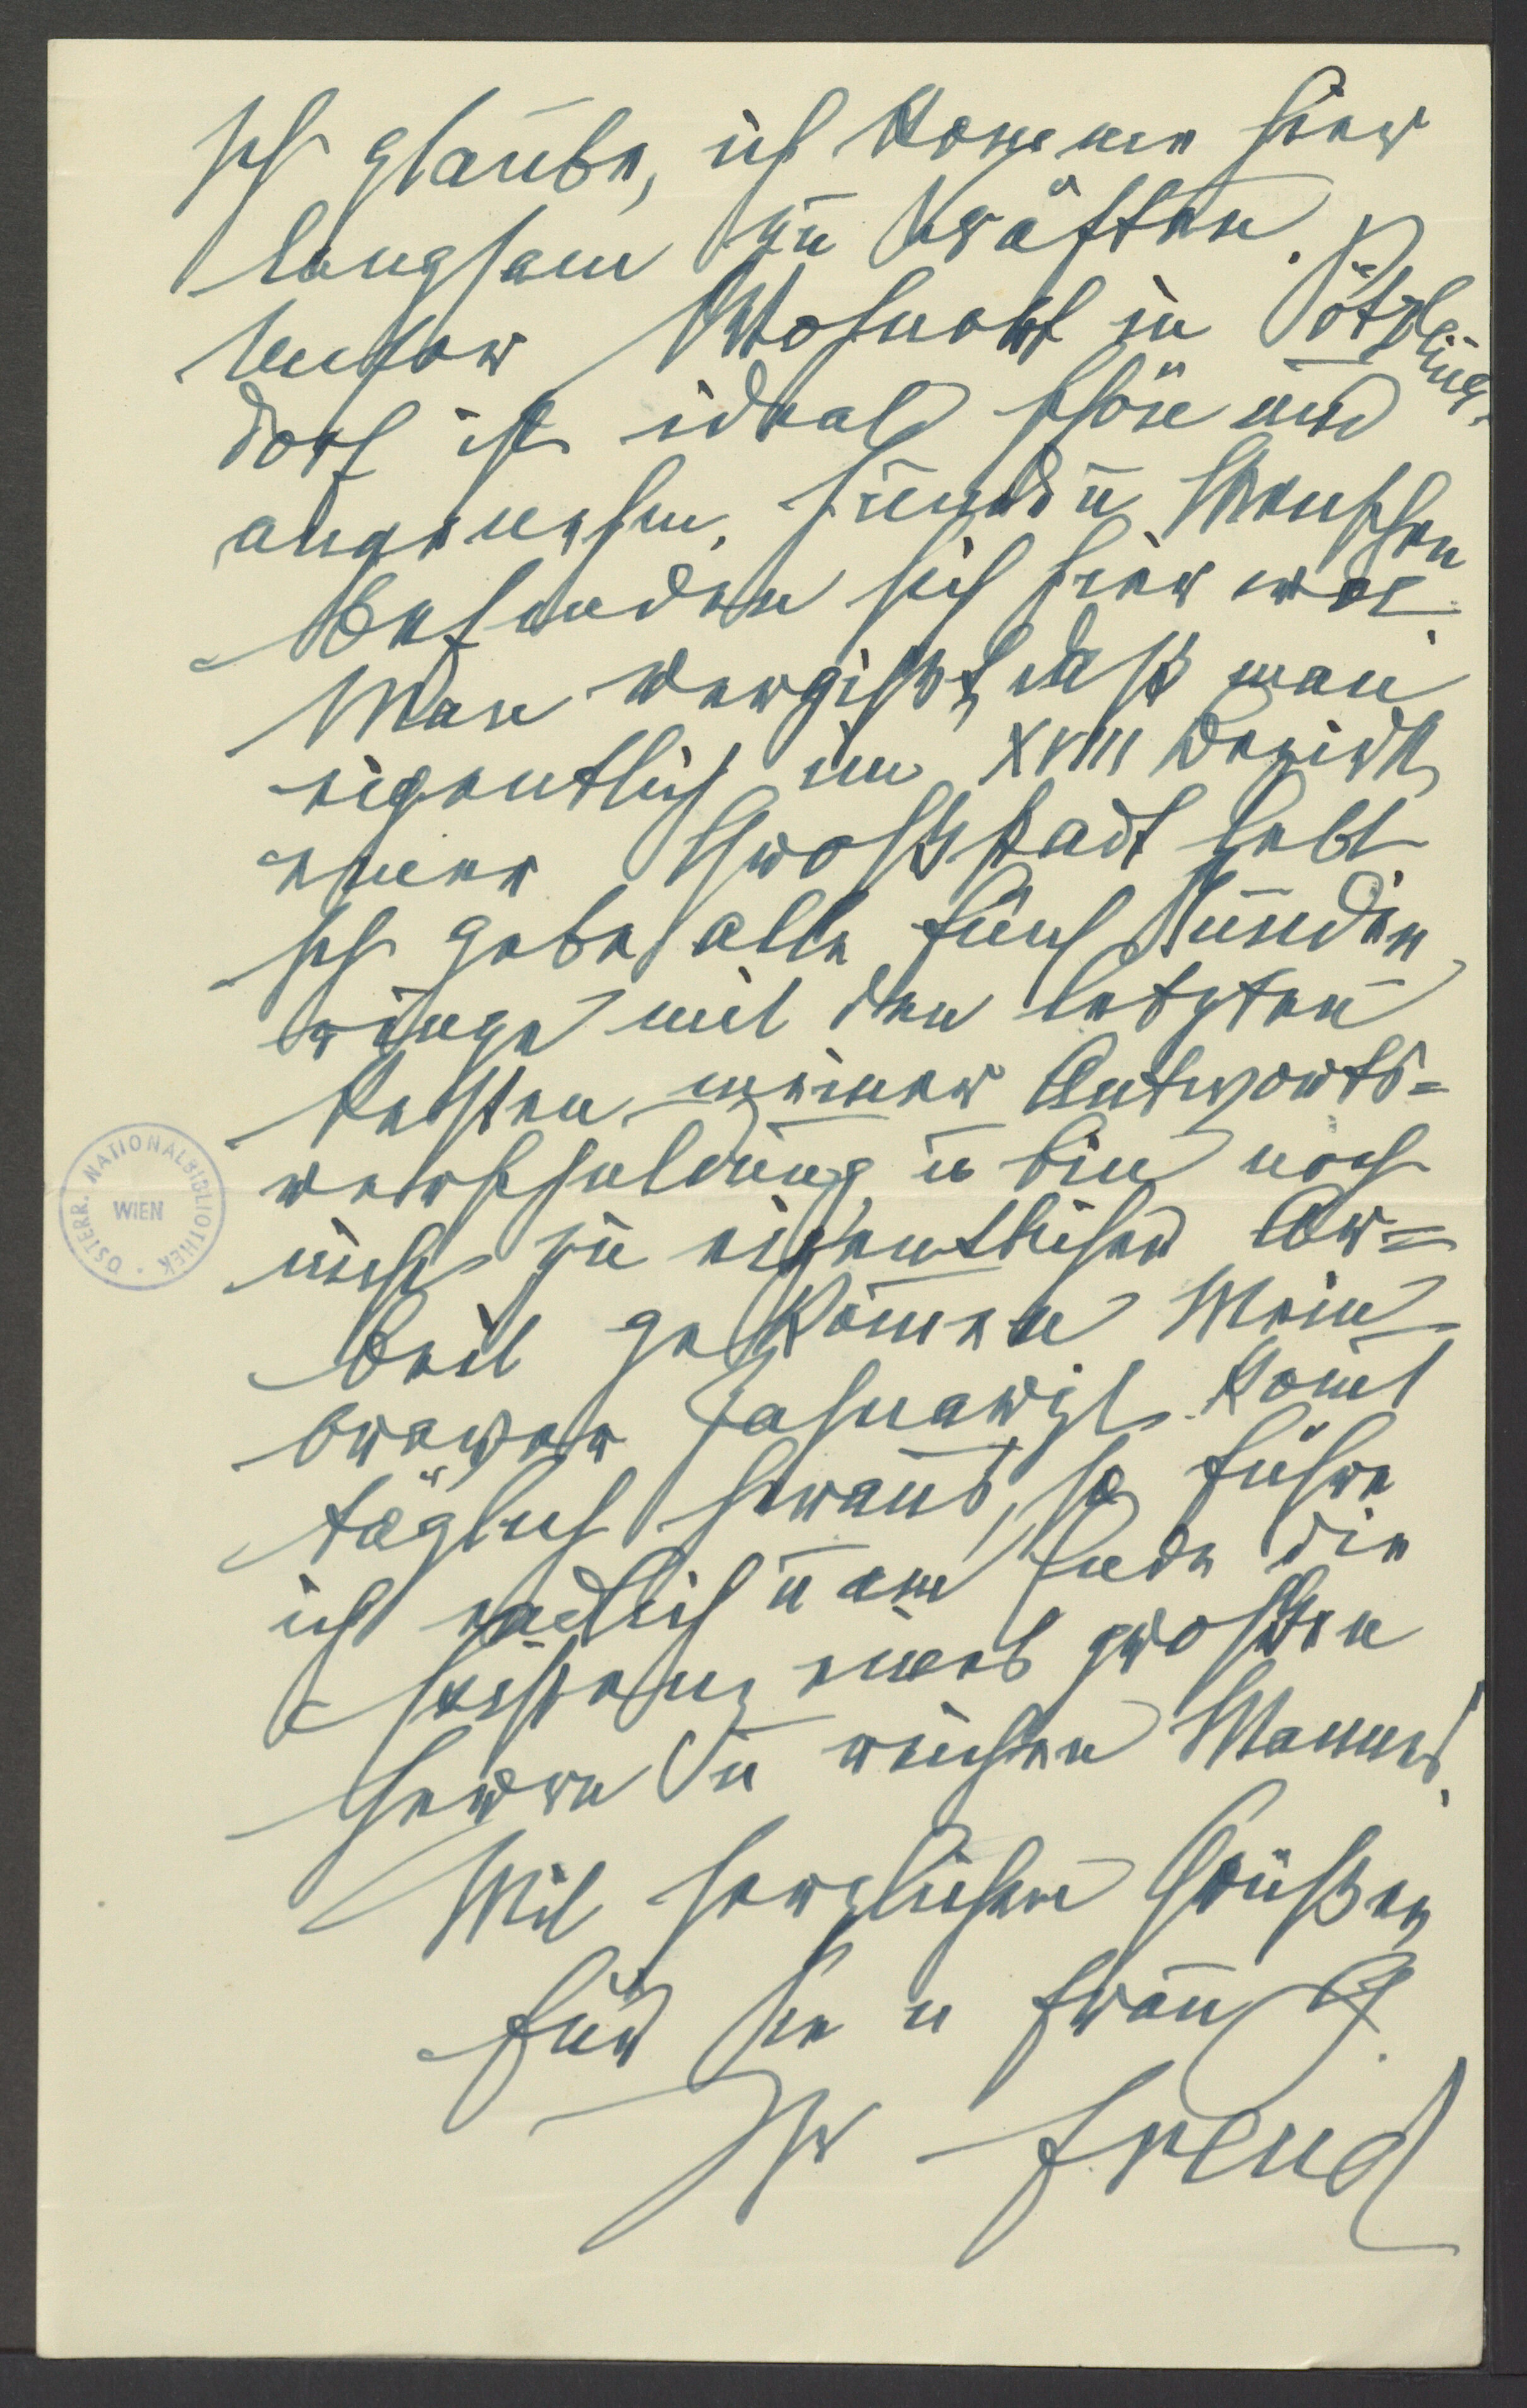 Ich glaube, ich komme hier
langsam zu Kräften.
Unser Wohnort in Pötzleins-
dorf ist ideal schön und
angenehm, Hunde u Menschen
befinden sich hier wol.
Man vergißt, daß man
eigentlich im XVIII Bezirk
einer Großstadt lebt.
Ich gebe alle fünf Stunden,
ringe mit den letzten
Resten meiner Antworts-
verschuldung u bin noch
nicht zu eigentlicher Ar-
beit gekommen. Mein
braver Zahnarzt komt
täglich heraus, so führe
ich endlich u am Ende die
Existenz eines großen
Herrn u reichen Mannes.
Mit herzlichen Grüßen
für Sie u Frau G.
Ihr Freud
ÖSTERR. NATIONALBIBLIOTHEK · WIEN